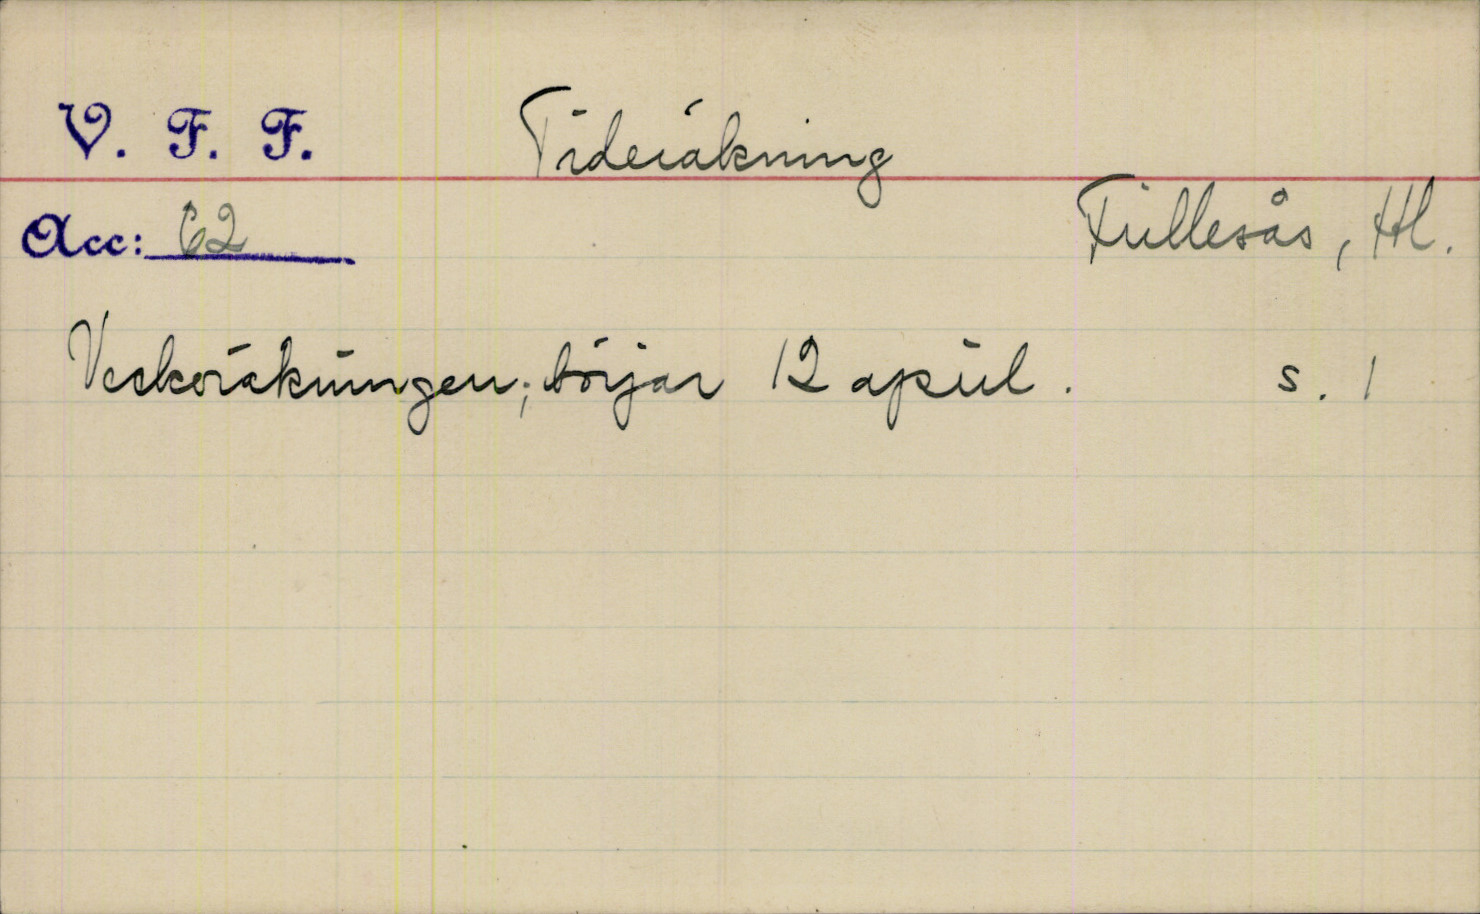 V. F. F. Tideräkning
Acc: 62 Fullesås, Hl.
Veckoräkningen; börjar 12 april. s. 1